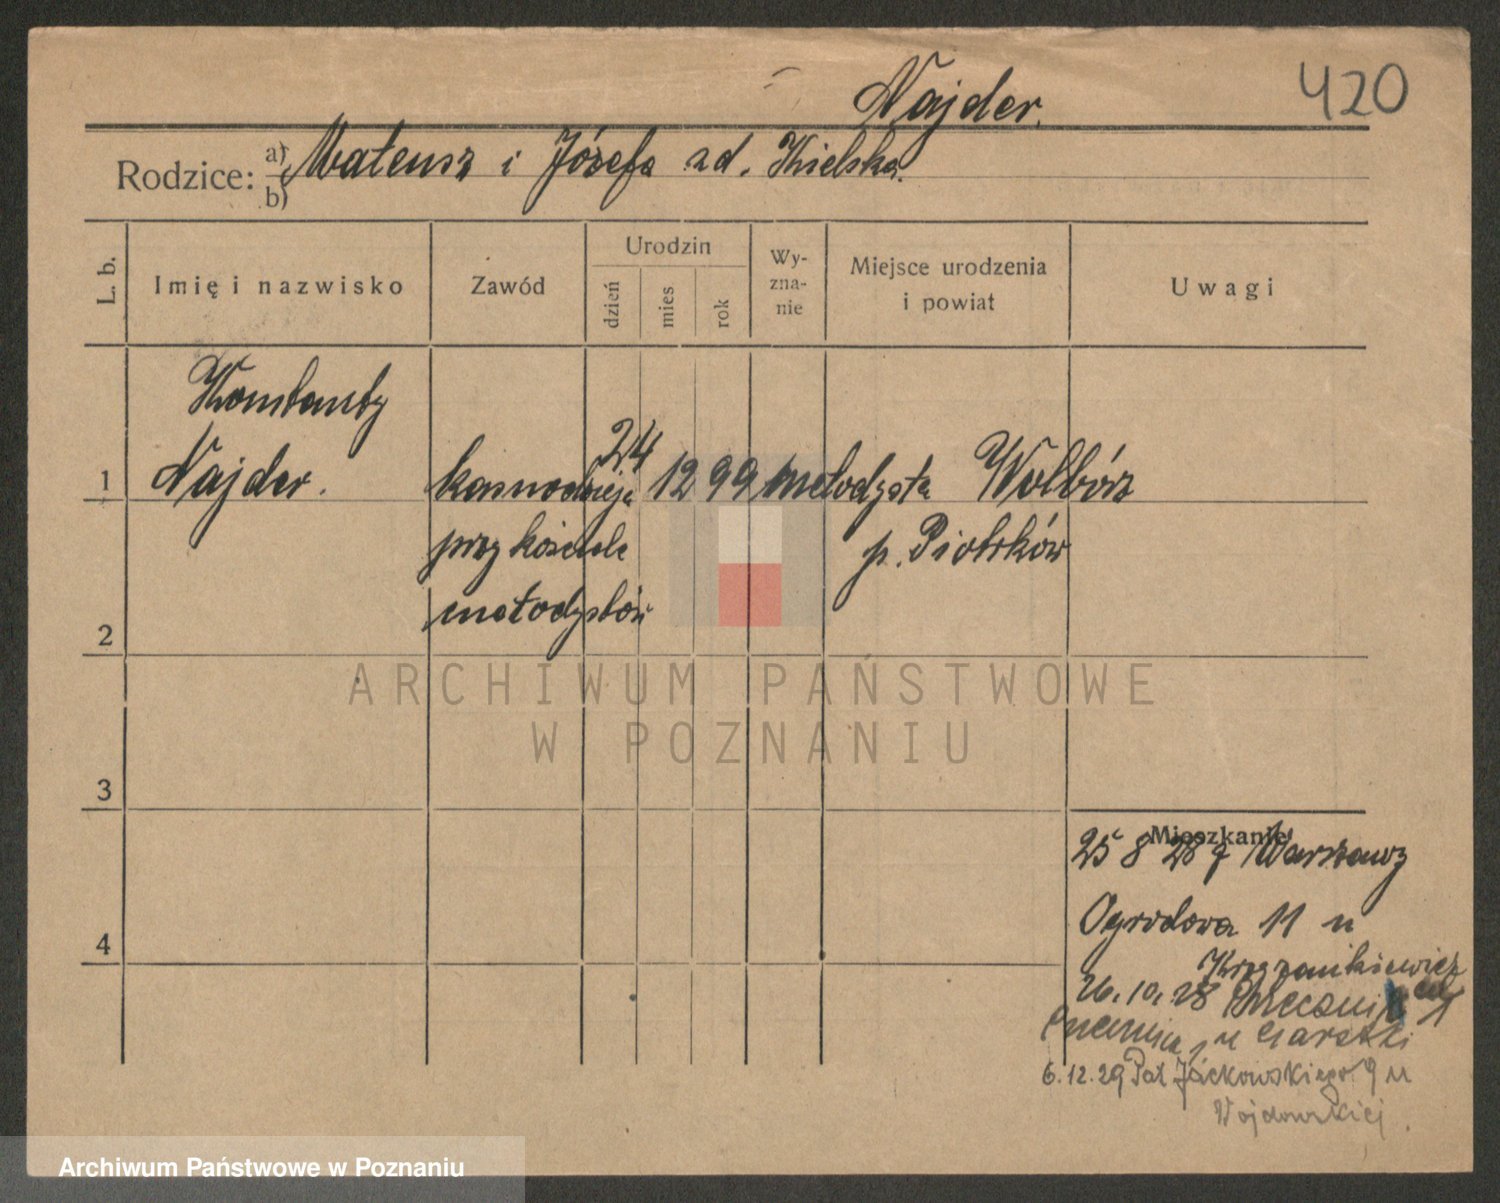 Najder.
420
Rodzice: a) b) Mateusz i Józefa zd. Kielska.
L. b.
Imię i nazwisko
Zawód
Urodzin
dzień
mies
rok
Wy-
zna-
nie
Miejsce urodzenia
i powiat
Uwagi
Konstanty
1 Najder. kasnodzieja 24 12 99 metodysta Wolbórz
przy kościele p. Piotrków
metodystów
2
ARCHIWUM PAŃSTWOWE
W POZNANIU
3
Mieszkanie
25 8 28 z Warszawy
4 Ogrodowa 11 u
Krzyzankiewicz
26.10.28
u Garstki
6.12.29 Pat Jackowskiego 9 u
Wojdowskiej.
Archiwum Państwowe w Poznaniu